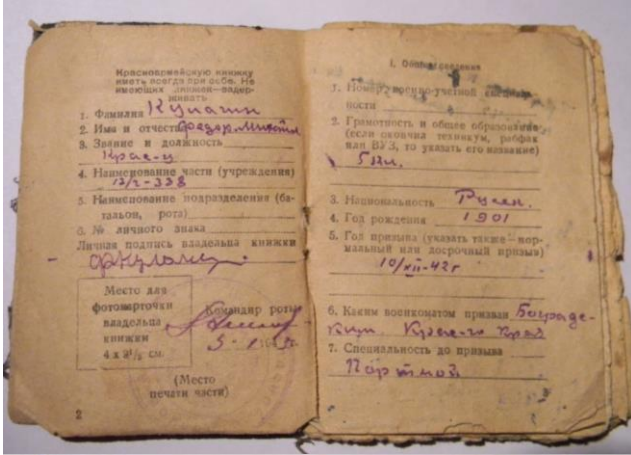 Красноармейскую книжку
иметь всегда при себе. Не
имеющих книжек—задер-
живать
1. Фамилия Кулагин
2. Имя и отчество Федор
3. Звание и должность
Крас-ц
4. Наименование части (учреждения)
5. Наименование подразделения (ба-
тальон, рота)
6. № личного знака
Личная подпись владельца книжки
Место для
фотокарточки
владельца
книжки
4 х 3¹/₂ см.
Командир роты
(Место
печати части)
2
I. Общие сведения
1. Номер военно-учетной специаль-
ности
2. Грамотность и общее образование
(если окончил техникум, рабфак
или ВУЗ, то указать его название)
5 кл.
3. Национальность Русск.
4. Год рождения 1901
5. Год призыва (указать также—нор-
мальный или досрочный призыв)
10/XII-42г
6. Каким военкоматом призван Боградс-
ким. Крас-го края
7. Специальность до призыва
Портной